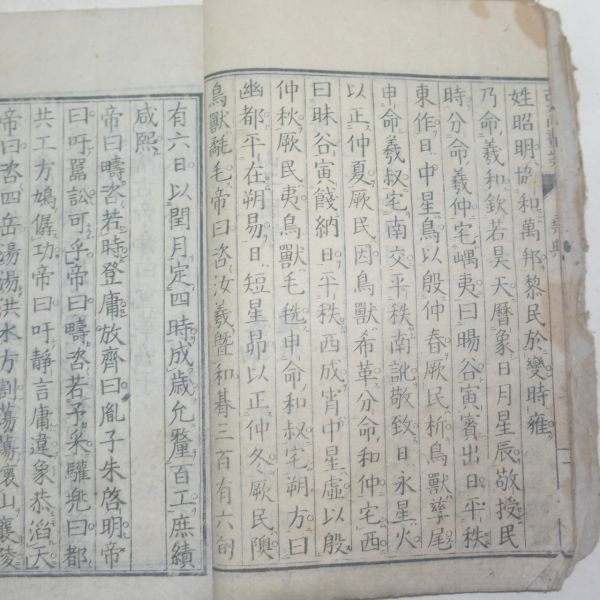 堯典
姓昭明協和萬邦黎民於變時雍
乃命羲和欽若昊天曆象日月星辰敬授民
時分命羲仲宅嵎夷曰暘谷寅賓出日平秩
東作日中星鳥以殷仲春厥民析鳥獸孶尾
申命羲叔宅南交平秩南訛敬致日永星火
以正仲夏厥民因鳥獸希革分命和仲宅西
曰昧谷寅餞納日平秩西成宵中星虛以殷
仲秋厥民夷鳥獸毛毨申命和叔宅朔方曰
幽都平在朔易日短星昴以正仲冬厥民隩
鳥獸氄毛帝曰咨汝羲曁和朞三百有六旬
有六日以閏月定四時成歲允釐百工庶績
咸熙
帝曰疇咨若時登庸放齊曰胤子朱啓明帝
曰吁嚚訟可乎帝曰疇咨若予采驩兜曰都
共工方鳩僝功帝曰吁靜言庸違象恭滔天
帝曰咨四岳湯湯洪水方割蕩蕩懷山襄陵